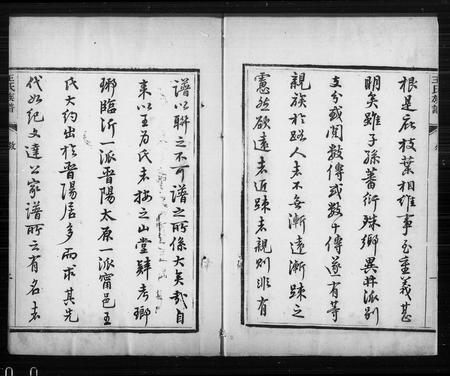 王氏族譜
根是庇枝葉相維事至重義甚
明矣雖子孫蕃衍殊鄉異井派別
支分或閱數傳或數十傳遂有等
親族於路人者不無漸遠漸疎之
憲然欲遠者近疎者親則非有
譜以聯之不可譜之所係大矣哉自
來以王為氏者按之山堂肆考瑯
琊臨沂一派晉陽太原一派甯邑王
氏大約出於晉陽居多而求其先
代如紀文達公家譜所云有名者
王氏族譜